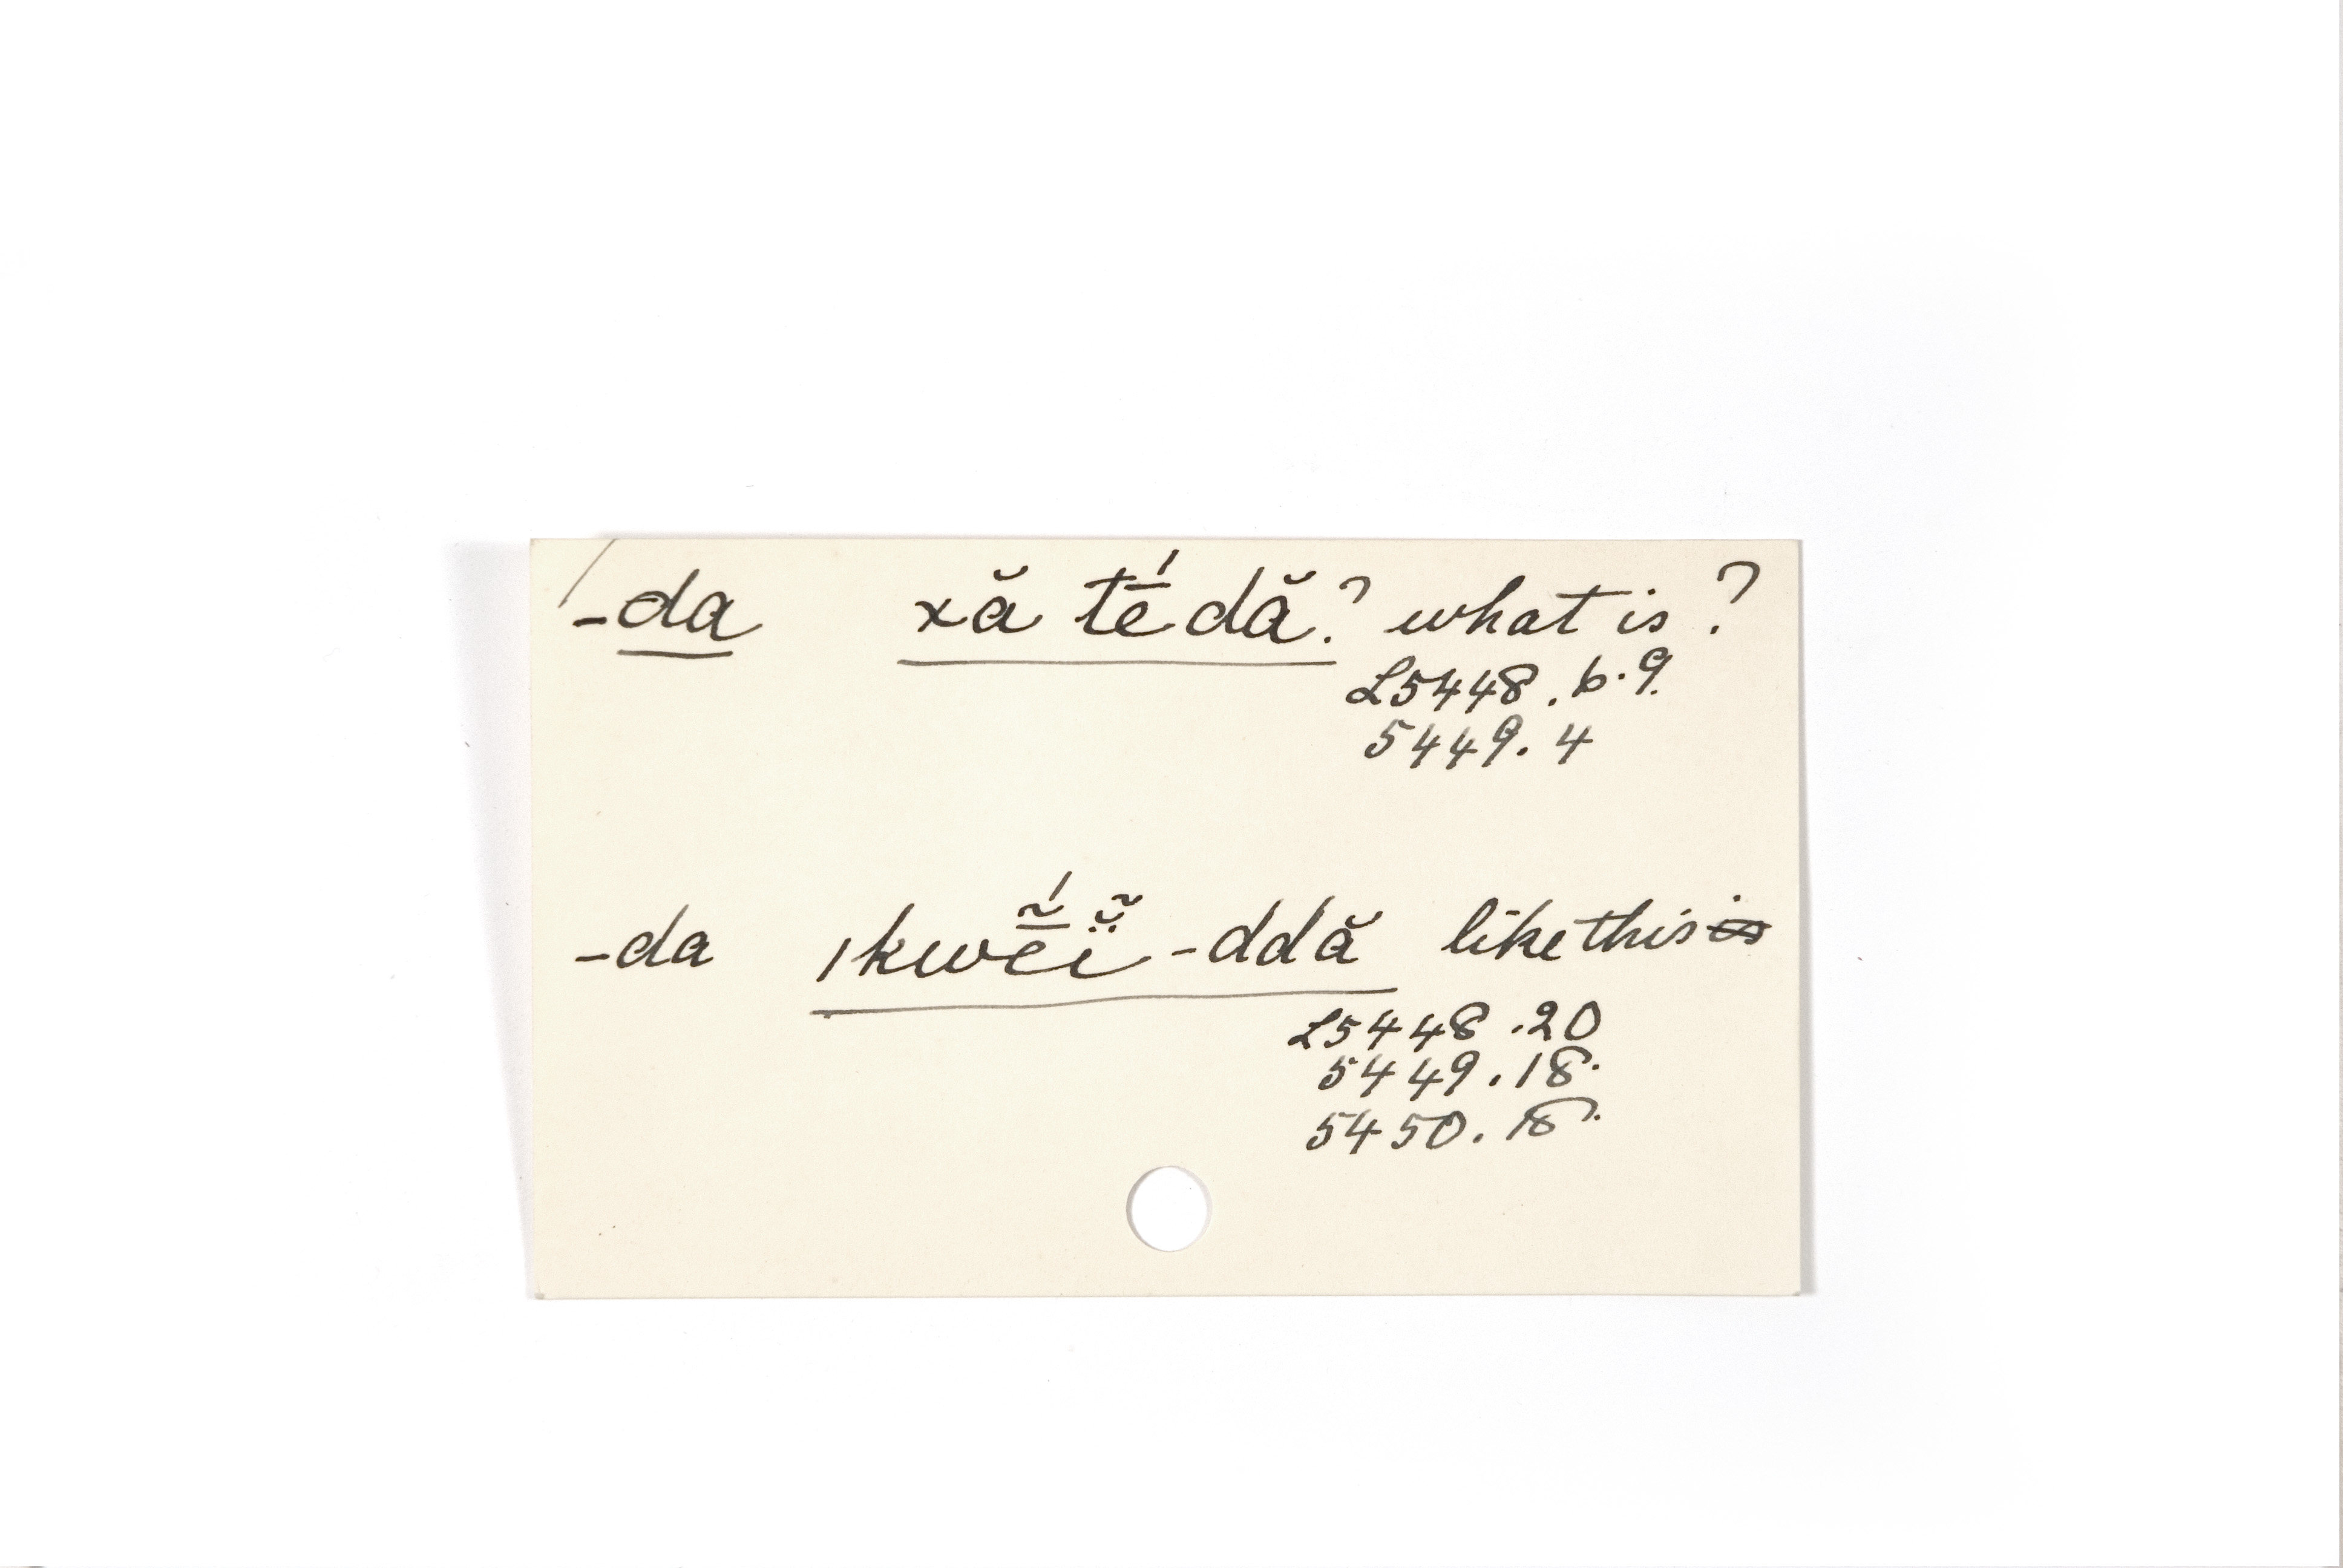 -da xă tḗdă? what is ?
L5448 . 6 . 9.
5449. 4
-da ıkwḗ̃ĭ̈̃ -ddă like this ~~is~~
L5448 .20
5449 . 18.
5450. 18.